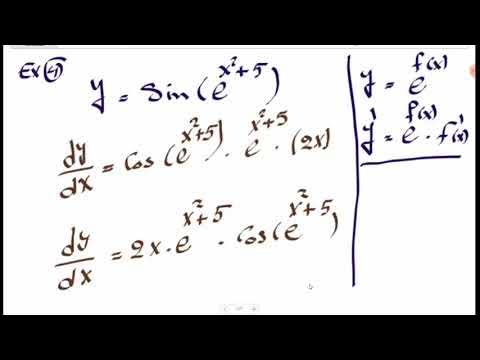 Ex 4
y = Sin(e^{x²+5})
dy/dx = Cos(e^{x²+5}) · e^{x²+5} · (2x)
dy/dx = 2x · e^{x²+5} · Cos(e^{x²+5})
y = e^{f(x)}
y' = e^{f(x)} · f'(x)